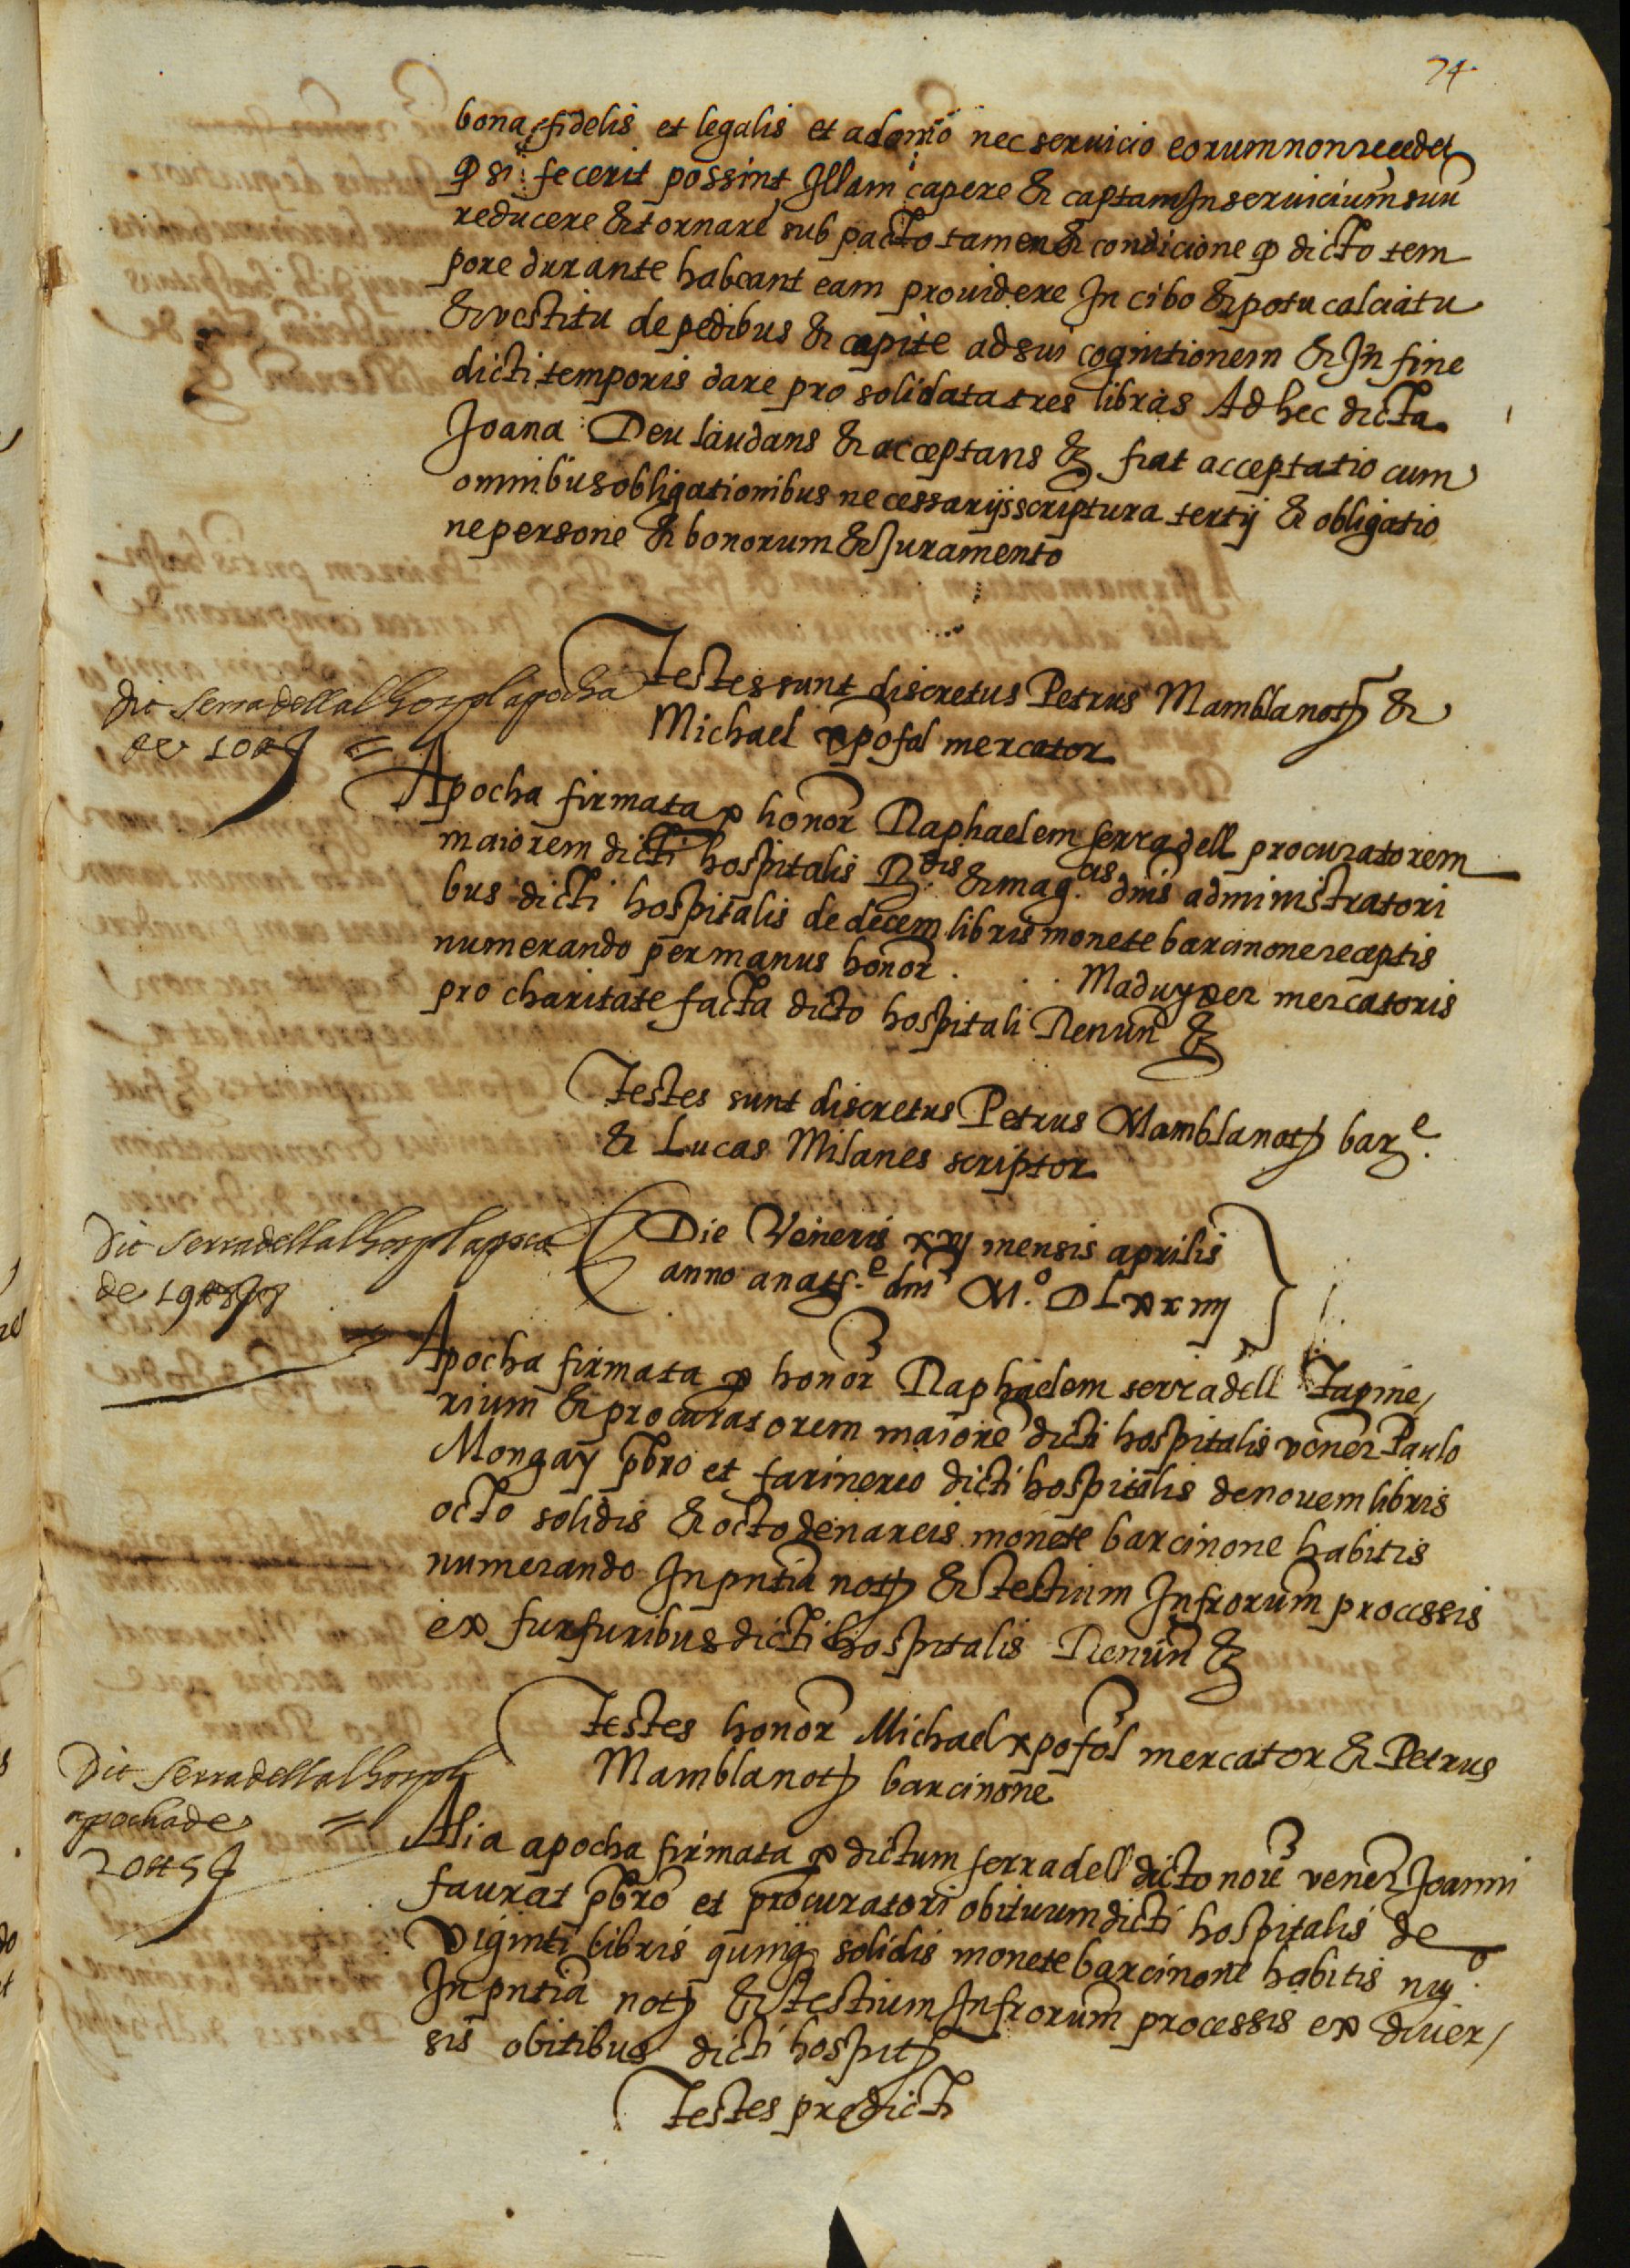 74
bona fidelis et legalis et a domo nec seruicio eorum non recedet
q si fecerit possint Illam capere & captam In seruicium suu
reducere & tornare sub pacto tamen & condicione q dicto tem
pore durante habeant eam prouidere In cibo & potu calciatu
& vestitu de pedibus & capite ad sui cognitionem & In fine
dicti temporis dare pro solidata tres libras Ad hec dicta
Joana Deu laudans & acceptans &c fiat acceptatio cum
omnibus obligationibus necessarijs scriptura tertij & obligatio
ne persone & bonorum & Juramento
Testes sunt discretus Petrus Mamblanot &
Michael xpofol mercator
dit serradell al hospl apocha
de 10
Apocha firmata p honor Raphaelem serradell procuratorem
maiorem dicti hospitalis R.dis & mag.cis dnis administratori
bus dicti hospitalis de decem libris monete barcinone receptis
numerando per manus honor . . . Maduyxer mercatoris
pro charitate facta dicto hospitali Renun &c
Testes sunt discretus Petrus Mamblanot bar.e
& Lucas Milanes scriptor
Die Veneris xvj mensis aprilis
anno a nat.e dni M.o D Lxx iiij
dit serradell al hospl apoca
de
Apocha firmata p honor Raphaelem serradell Tapine/
rium & procuratorem maiore dicti hospitalis vener Paulo
Mongay pbro et farinerio dicti hospitalis de nouem libris
octo solidis & octo denareis monete barcinone habitis
numerando In pntia not & testium Infrorum processis
ex furfuribus dicti hospitalis Renun &c
Testes honor Michael xpofol mercator & Petrus
Mamblanot barcinone
Dit serradell al hospl
apocha de
20 5
Alia apocha firmata p dictum serradell dicto noie vener Joanni
faurat pbro et procuratori obituum dicti hospitalis de
viginti libris quinq solidis monete barcinone habitis nu.o
In pntia not & testium Infrorum processis ex diuer/
sis obitibus dicti hospit
Testes predicti